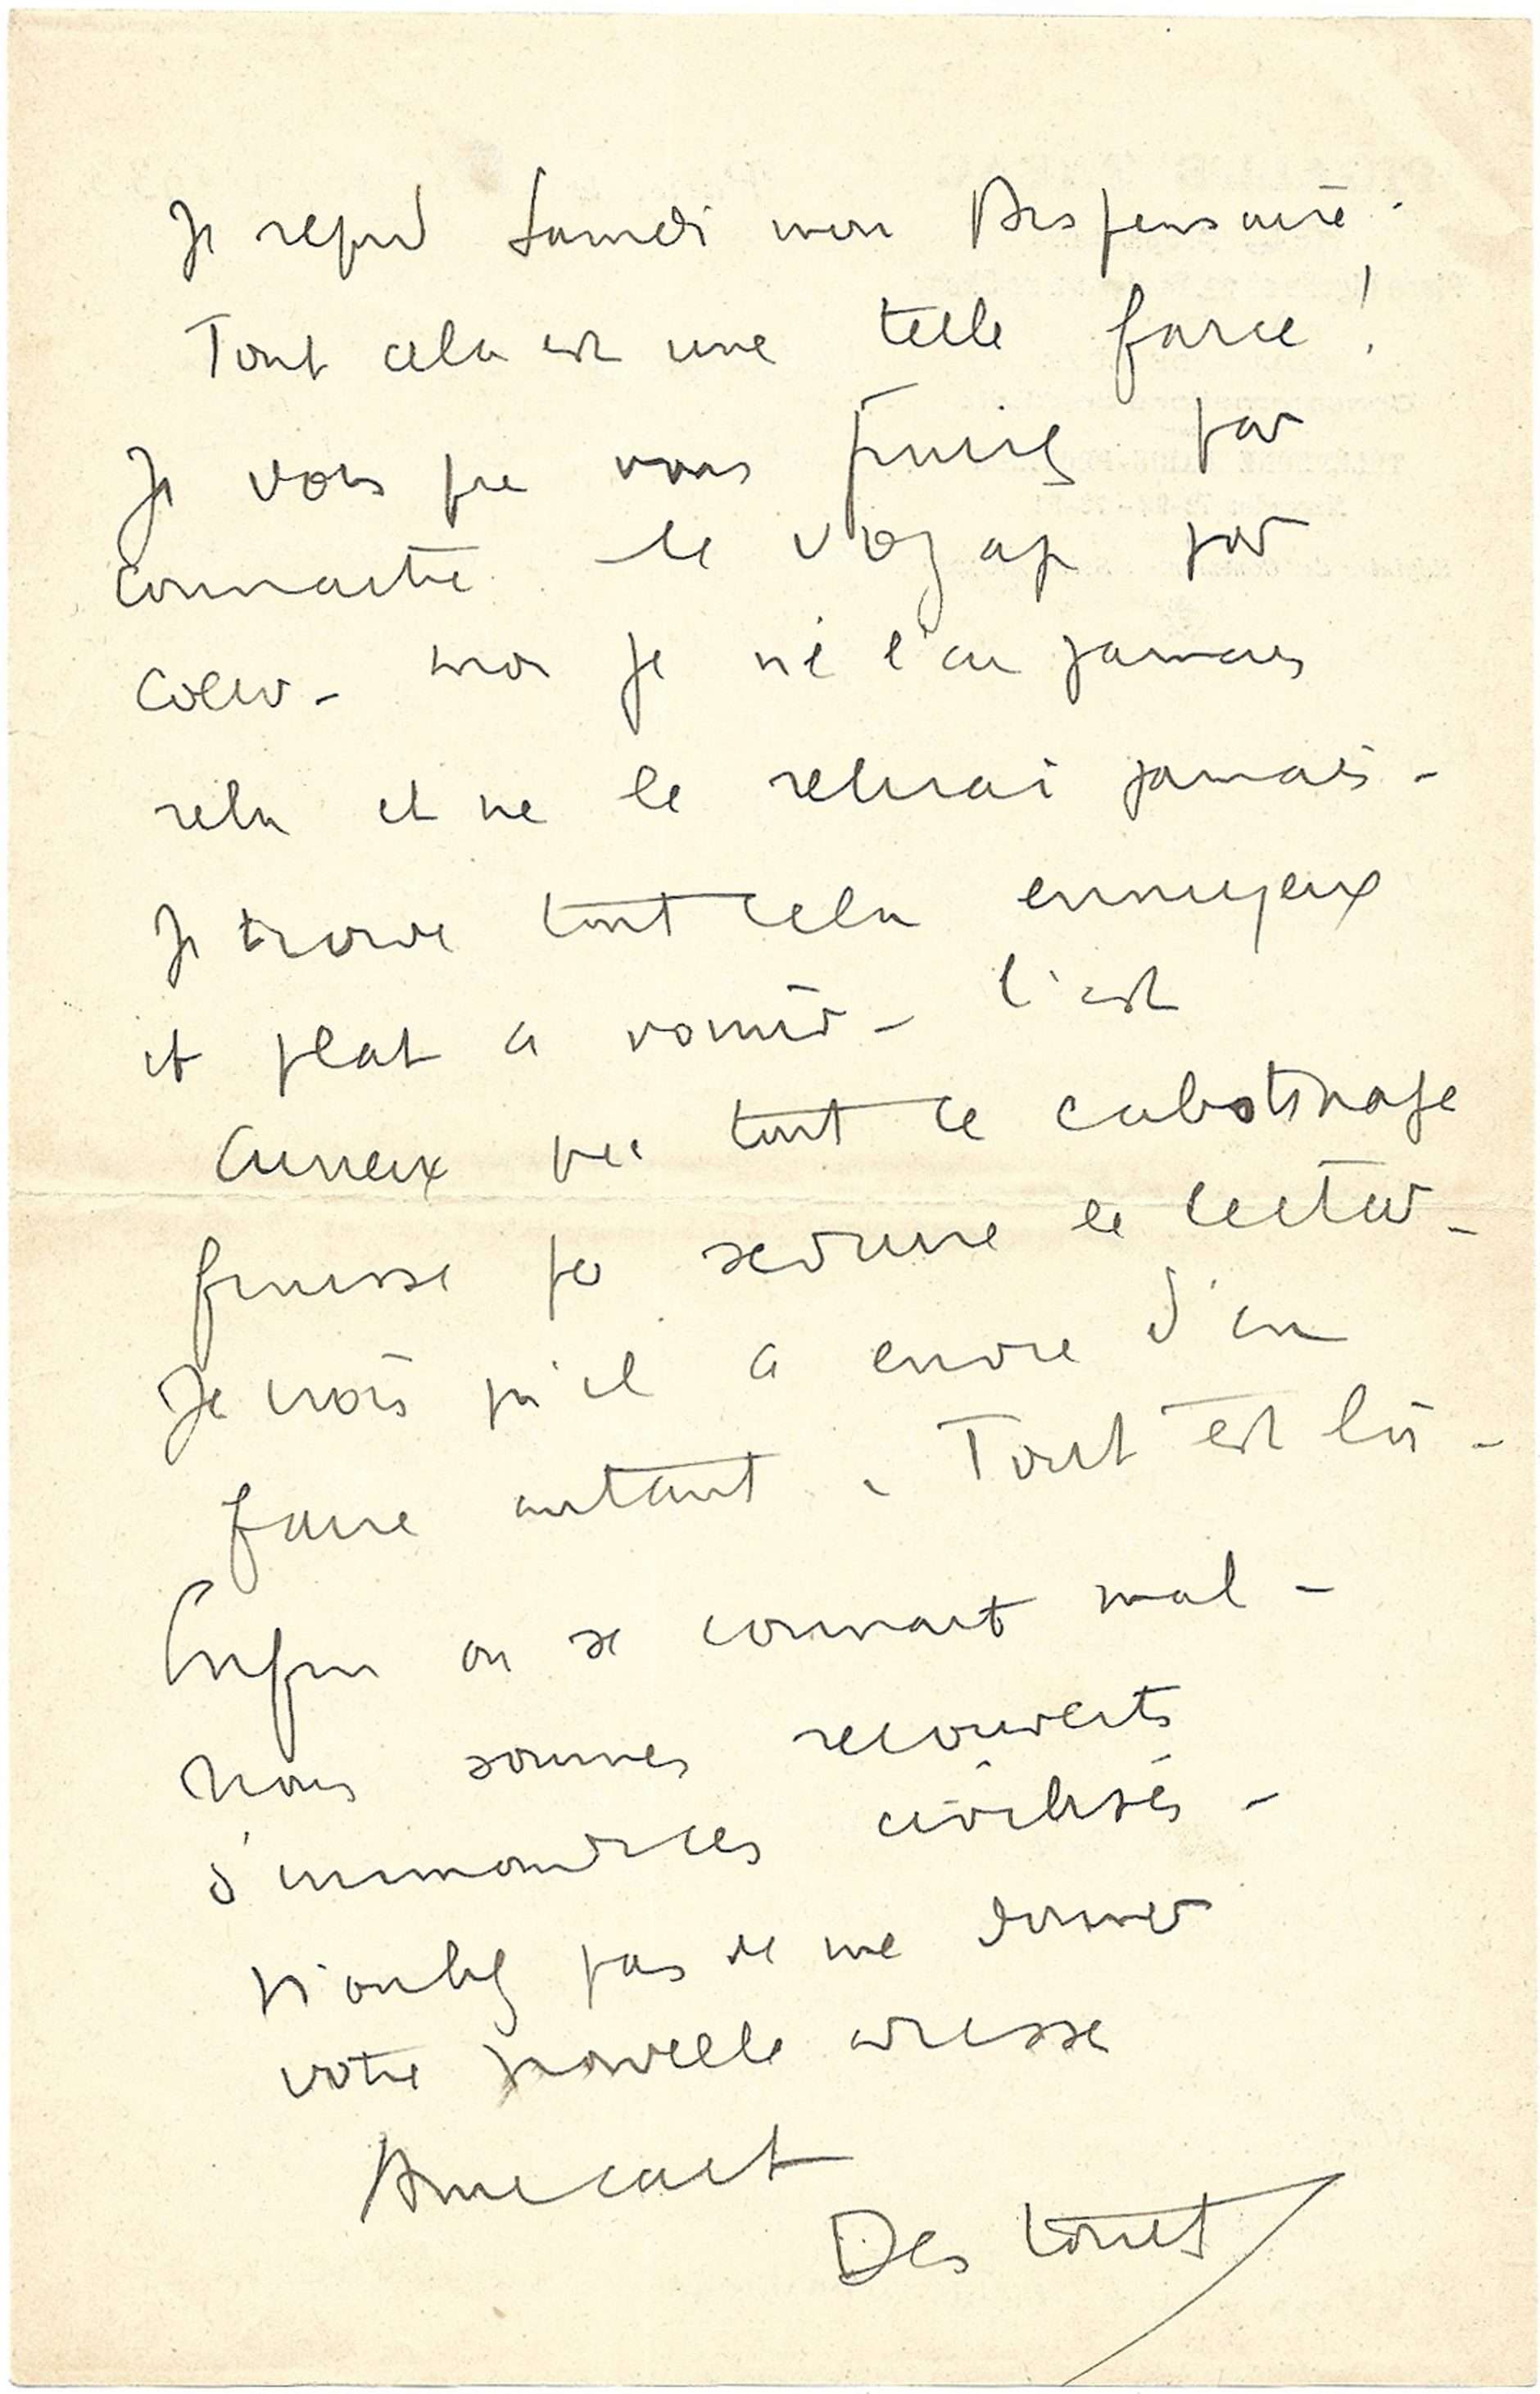 Je reprend Samedi mon Dispensaire.
Tout cela est une telle farce!
Je vois que vous finirez par
connaitre le Voyage par
coeur - moi je ne l'ai jamais
relu et ne le relirai jamais -
Je trouve tout cela ennuyeux
et plat a vomir - C'est
curieux que tout ce cabotinage
finisse par seduire le lecteur -
Je crois qu'il a envie d'en
faire autant. Tout est là -
Enfin on se connait mal -
Nous sommes recouverts
d'immondices civilisés -
N'oubliez pas de me donner
votre nouvelle adresse
Amicalt
Des touches